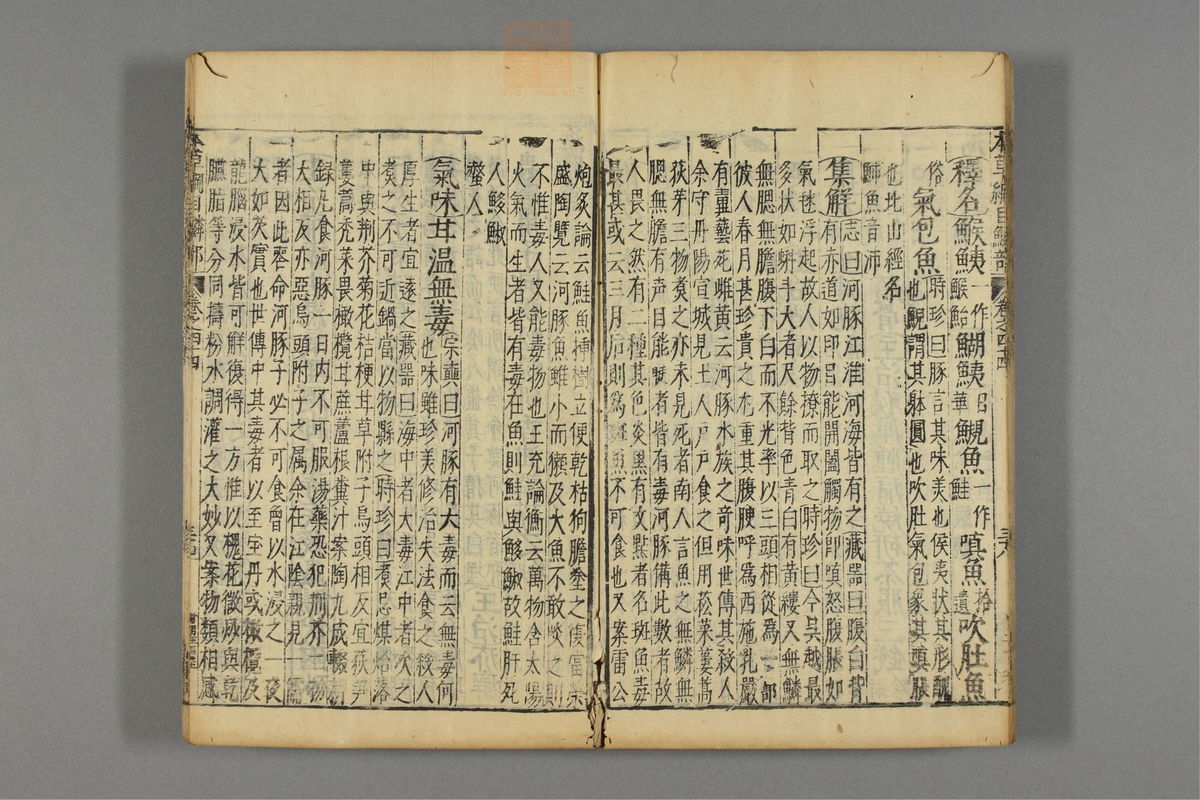 本草綱目鱗部 卷之四十四 三十六
釋名鯸鮧一作鰗鮧日華鯢魚一作嗔魚拾遺吹肚魚
鯸鮐 鮭
俗氣包魚時珍曰豚言其味美也侯夷狀其形醜
也鯢謂其躰圓也吹肚氣包象其嗔脹
也北山經名
鮨魚音沛
集解志曰河豚江淮河海皆有之藏器曰腹白背
有赤道如印目能開闔觸物即嗔怒腹脹如
氣毬浮起故人以物撩而取之時珍曰今吳越最
多狀如蝌斗大者尺餘背色青白有黃縷又無鱗
無腮無膽腹下白而不光率以三頭相從為一部
彼人春月甚珍貴之尤重其腹腴呼為西施乳嚴
有翼藝苑雌黃云河豚水族之奇味世傳其殺人
余守丹陽宣城見土人戶戶食之但用菘菜蔞蒿
荻芽三物煑之亦未見死者南人言魚之無鱗無
腮無膽有声目能眨者皆有毒河豚備此數者故
人畏之然有二種其色炎黑有文點者名斑魚毒
最甚或云三月后則為斑魚不可食也又案雷公
炮炙論云鮭魚揷樹立便乾枯狗膽塗之復當榮
盛陶覽云河豚魚雖小而獺及大魚不敢啖之則
不惟毒人又能毒物也王充論衡云萬物含太陽
火氣而生者皆有毒在魚則鮭與䱌䱀故鮭肝死
人䱌䱀
螫人
氣味甘温無毒宗奭曰河豚有大毒而云無毒何
也味雖珍美修治失法食之殺人
厚生者宜遠之藏器曰海中者大毒江中者次之
煑之不可近鍋當以物縣之時珍曰煑忌煤炲落
中與荆芥菊花桔梗甘草附子烏頭相反宜荻笋
蔞蒿禿菜畏橄欖甘蔗蘆根糞汁案陶九成輟耕
録凡食河豚一日内不可服湯藥恐犯荆芥二物
大相反亦惡烏頭附子之属余在江陰親見一儒
者因此喪命河豚子必不可食曾以水浸之一夜
大如芡實也世傳中其毒者以至宝丹或橄欖及
龍腦浸水皆可解復得一方惟以槐花微炒與乾
臙脂等分同擣粉水調灌之大妙又案物類相感
本草綱目鱗部 卷之四十四